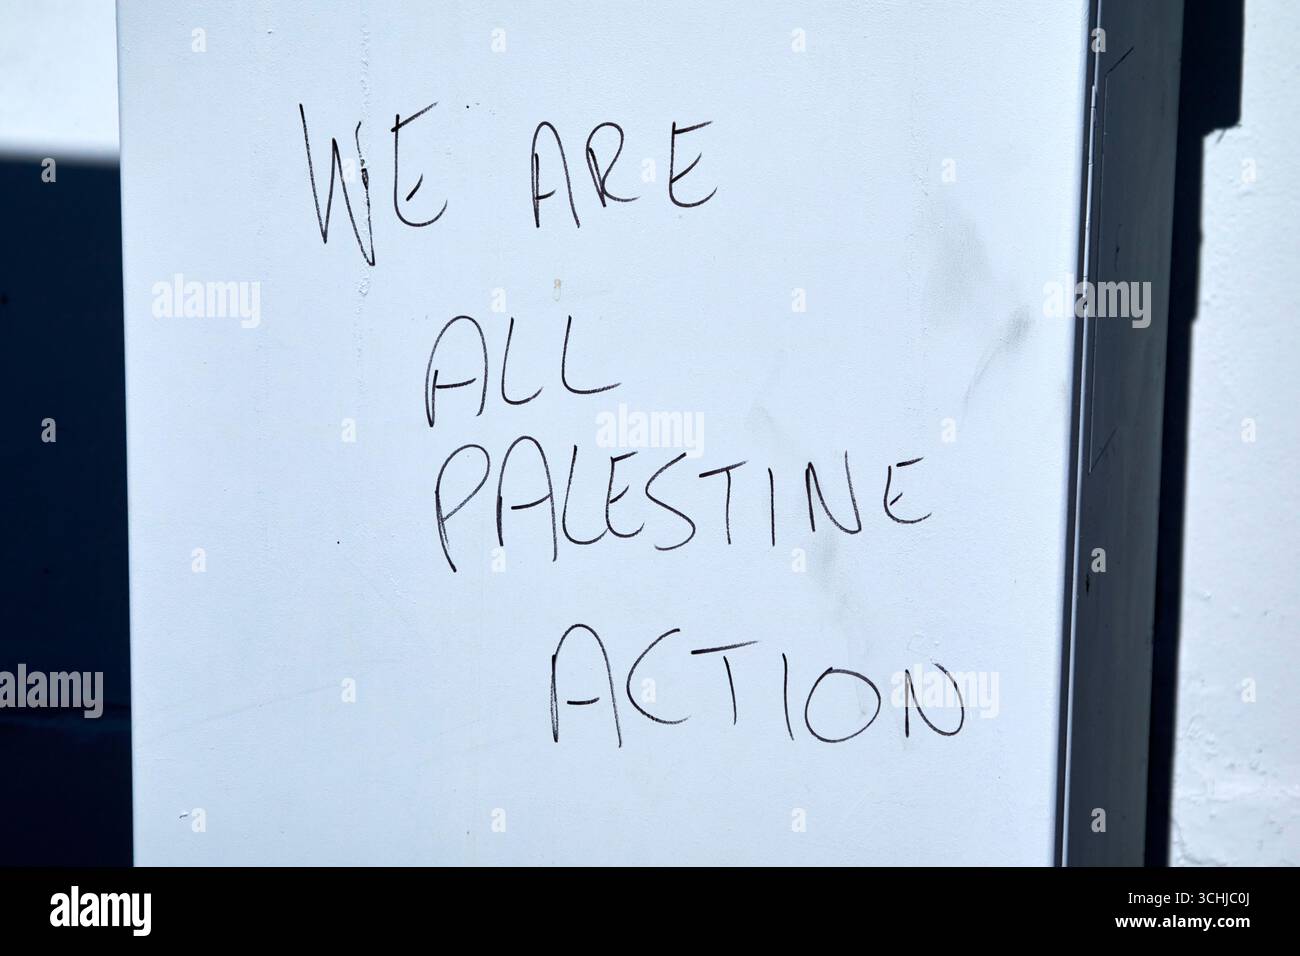 WE ARE
ALL
PALESTINE
ACTION
alamy
alamy
alamy
alamy
alamy
Image ID: 3CHJC0J
www.alamy.com